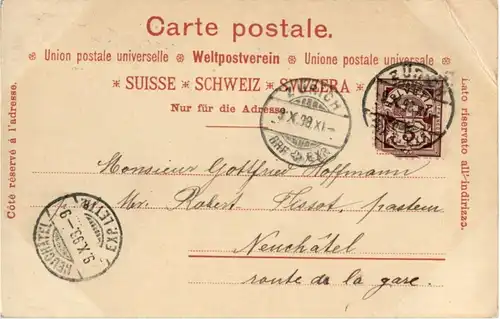 Carte postale.
Union postale universelle Weltpostverein Unione postale universale
SUISSE SCHWEIZ SVIZZERA
Nur für die Adresse
Côté réservé à l'adresse.
Lato riservato all'indirizzo.
ZÜRICH
9.X.98.XI-
BRF. EXP.
ZÜR
5
Monsieur Gottfried Hoffmann
Mr. Robert pasteur
Neuchâtel
route de la gare.
NEUCHATEL EXP. LETTR.
9.X.98.-9